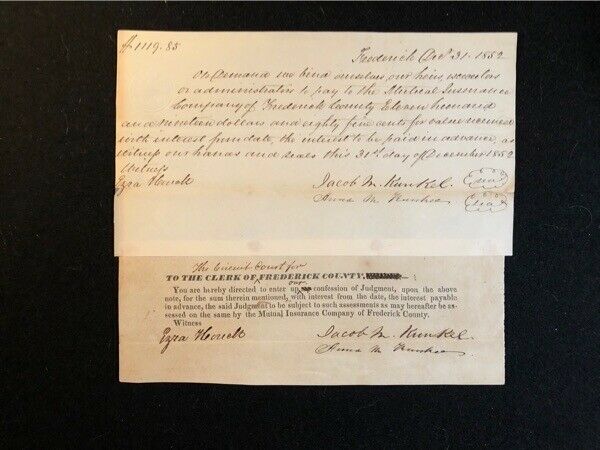 $1119.85
Frederick Decr 31. 1852
On Demand we bind ourselves, our heirs, executors
or administrators to pay to the Mutual Insurance
Company of Frederick County Eleven hundred
and nineteen dollars and eighty five cents for value received
with interest from date, the interest to be paid in advance, as
witness our hands and seals this 31st day of December 1852
Witness
Ezra Houck Jacob M. Kunkel. Seal
Anna M Kunkel Seal
The Circuit Court for
TO THE CLERK OF FREDERICK COUNTY,
our
You are hereby directed to enter up confession of Judgment, upon the above
note, for the sum therein mentioned, with interest from the date, the interest payable
in advance, the said Judgment to be subject to such assessments as may hereafter be as-
sessed on the same by the Mutual Insurance Company of Frederick County.
Witness
Ezra Houck Jacob M. Kunkel.
Anna M Kunkel